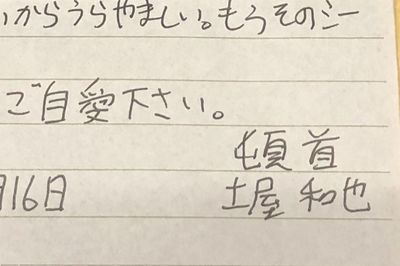 からうらやましい。もうそのミー
ご自愛下さい。
頓首
月16日
土屋和也